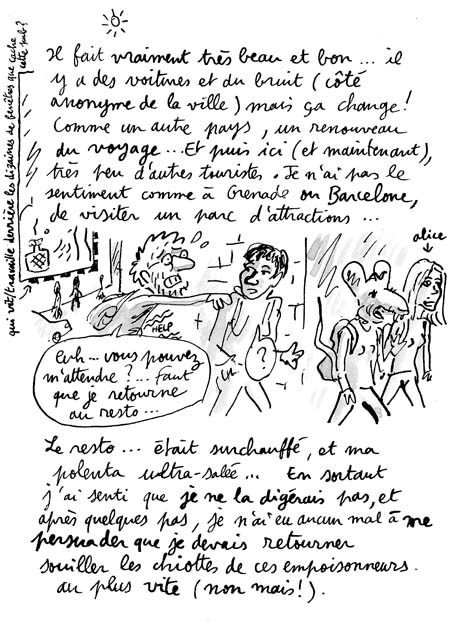 qui vit/travaille derrière les dizaines de fenêtres que cache
cette pub?
Il fait vraiment très beau et bon... il
y a des voitures et du bruit (côté
anonyme de la ville) mais ça change!
Comme un autre pays, un renouveau
du voyage... Et puis ici (et maintenant),
très peu d'autres touristes. Je n'ai pas le
sentiment comme à Grenade ou Barcelone,
de visiter un parc d'attractions...
alice
HELP
?
Euh... vous pouvez
m'attendre?... faut
que je retourne
au resto...
Le resto... était surchauffé, et ma
polenta ultra-salée... En sortant
j'ai senti que je ne la digérais pas, et
après quelques pas, je n'ai eu aucun mal à me
persuader que je devais retourner
souiller les chiottes de ces empoisonneurs.
au plus vite (non mais!).